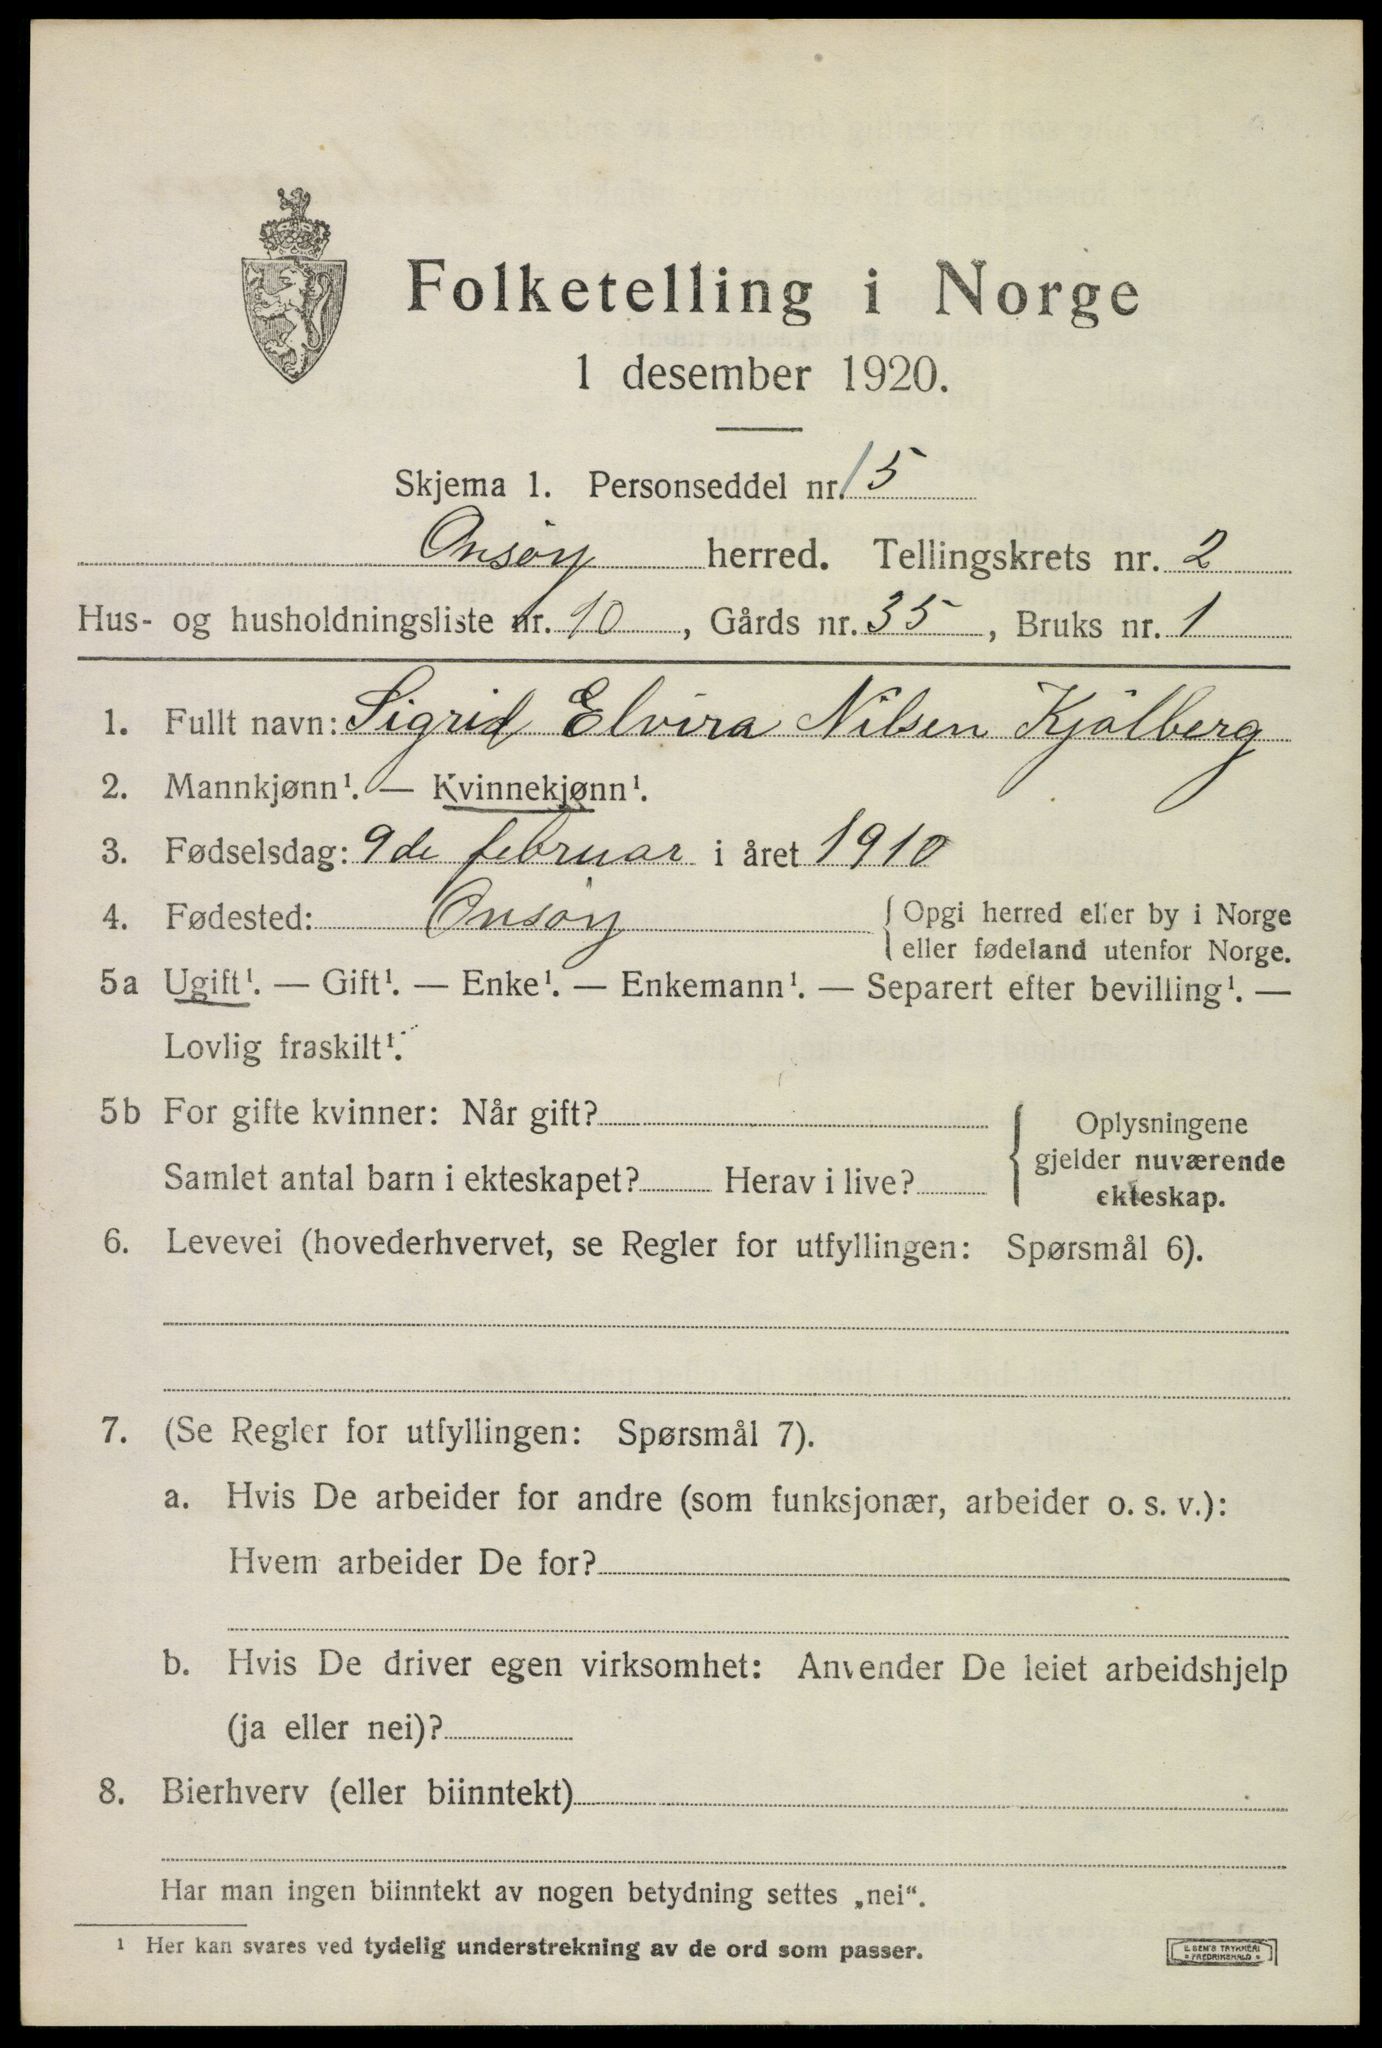 Folketelling i Norge
1 desember 1920.
Skjema 1. Personseddel nr. 15
Onsøy herred. Tellingskrets nr. 2
Hus- og husholdningsliste nr. 10, Gårds nr. 35, Bruks nr. 1
1. Fullt navn: Sigrid Elvira Nilsen Kjölberg
2. Mannkjønn¹. — Kvinnekjønn¹.
3. Fødselsdag: 9de februar i året 1910
4. Fødested: Onsøy { Opgi herred eller by i Norge
eller fødeland utenfor Norge.
5a Ugift¹. — Gift¹. — Enke¹. — Enkemann¹. — Separert efter bevilling¹. —
Lovlig fraskilt¹.
5b For gifte kvinner: Når gift? { Oplysningene
gjelder nuværende
ekteskap.
Samlet antal barn i ekteskapet? Herav i live?
6. Levevei (hovederhvervet, se Regler for utfyllingen: Spørsmål 6).
7. (Se Regler for utfyllingen: Spørsmål 7).
a. Hvis De arbeider for andre (som funksjonær, arbeider o. s. v.):
Hvem arbeider De for?
b. Hvis De driver egen virksomhet: Anvender De leiet arbeidshjelp
(ja eller nei)?
8. Bierhverv (eller biinntekt)
Har man ingen biinntekt av nogen betydning settes „nei“.
¹ Her kan svares ved tydelig understrekning av de ord som passer.
FREDRIKSHALD